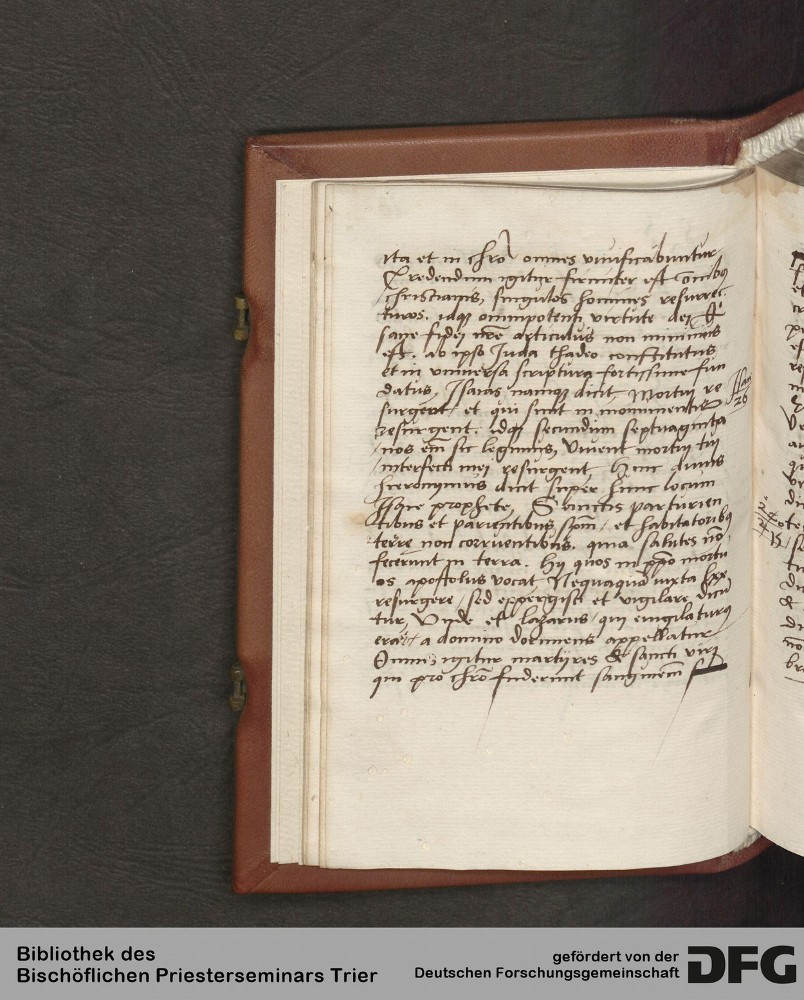 ita et in chro omnes viuificabuntur
Credendum igitur firmiter est omnibus
christianis, singulos homines resurrec¬
turos. idque omnipotenti virtute dei. &
sane fidei nre articulus non minimus
est. ab ipso Iuda thadeo constitutus
et in vniuersa scriptura fortissime fun
datus, Isaias namque dicit Mortui re
surgent, et qui sunt in monumentis
resurgent. idque secundum septuaginta
nos em sic legimus, Viuent mortui tui
interfecti mei resurgent Hinc diuus
hieronymus dicit super hunc locum
Isaie prophete, Sanctis parturien
tibus et parientibus spm, et habitatoribus
terre non corruentibus. quia salutes no
fecerunt in terra. Hij quos in ppo mortu
os apostolus vocat Nequaquam iuxta
resurgere, sed expergisci et vigilare dicu
tur, Vnde et lazarus, qui euigilaturus
erat, a domino dormiens appellatur
Omnis igitur martyres & sancti viri
qui pro chro fuderunt sanguinem
Isai
26
Bibliothek des
Bischöflichen Priesterseminars Trier
gefördert von der
Deutschen Forschungsgemeinschaft
DFG